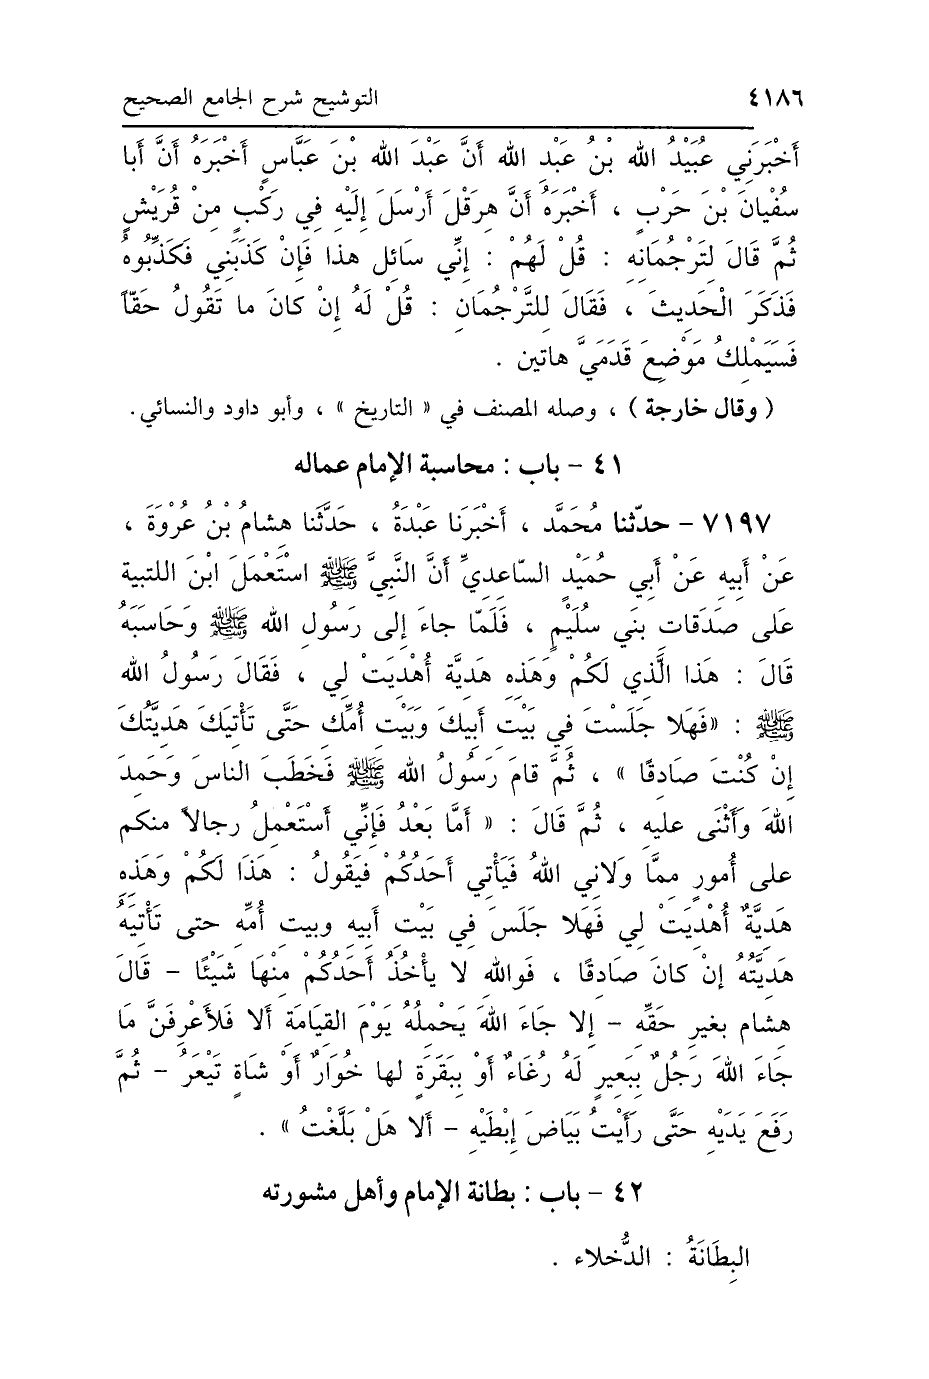 ٤١٨٦ التوشيح شرح الجامع الصحيح
أَخْبَرَنِي عُبَيْدُ الله بْنُ عَبْدِ الله أَنَّ عَبْدَ الله بْنَ عَبَّاسٍ أَخْبَرَهُ أَنَّ أَبا
سُفْيانَ بْنَ حَرْبٍ ، أَخْبَرَهُ أَنَّ هِرَقْلَ أَرْسَلَ إِلَيْهِ فِي رَكْبٍ مِنْ قُرَيْشٍ
ثُمَّ قَالَ لِتَرْجُمَانِهِ : قُلْ لَهُمْ : إِنِّي سَائِل هذا فَإِنْ كَذَبَنِي فَكَذِّبُوهُ
فَذَكَرَ الْحَدِيثَ ، فَقَالَ لِلتَّرْجُمَانِ : قُلْ لَهُ إِنْ كَانَ ما تَقُولُ حَقّاً
فَسَيَمْلِكُ مَوْضِعَ قَدَمَيَّ هاتين .
( وقال خارجة ) ، وصله المصنف في « التاريخ » ، وأبو داود والنسائي.
٤١ – باب : محاسبة الإمام عماله
٧١٩٧ – حدّثنا مُحَمَّد ، أَخْبَرَنَا عَبْدَةُ ، حَدَّثَنا هِشامُ بْنُ عُرْوَةَ ،
عَنْ أَبِيهِ عَنْ أَبِي حُمَيْدٍ السّاعِدِيِّ أَنَّ النَّبِيَّ ﷺ اسْتَعْمَلَ ابنَ اللتبية
عَلى صَدَقاتِ بنِي سُلَيْمٍ ، فَلَمّا جاءَ إلى رَسُولِ الله ﷺ وَحَاسَبَهُ
قَالَ : هَذا الَّذِي لَكُمْ وَهَذِهِ هَدِيَّة أُهْدِيَتْ لِي ، فَقَالَ رَسُولُ الله
ﷺ : «فَهَلا جَلَسْتَ فِي بَيْتِ أَبِيكَ وَبَيْتِ أُمِّكَ حَتَّى تَأْتِيَكَ هَدِيَّتُكَ
إِنْ كُنْتَ صَادِقًا » ، ثُمَّ قامَ رَسُولُ الله ﷺ فَخَطَبَ الناسَ وَحَمِدَ
اللهَ وَأَثْنَى عليهِ ، ثُمَّ قَالَ : « أَمَّا بَعْدُ فَإِنِّي أَسْتَعْمِلُ رِجالاً منكم
على أُمورٍ مِمَّا وَلانِي اللهُ فَيَأْتِي أَحَدُكُمْ فيَقُولُ : هَذَا لَكُمْ وَهَذِهِ
هَدِيَّةٌ أُهْدِيَتْ لِي فَهَلا جَلَسَ فِي بَيْتِ أَبِيهِ وبيت أُمِّهِ حتى تَأْتِيَهُ
هَدِيَّتُهُ إِنْ كانَ صادِقًا ، فَوالله لا يأْخُذُ أَحَدُكُمْ مِنْهَا شَيْئًا – قَالَ
هِشام بغيرِ حَقِّهِ – إلا جَاءَ اللهَ يَحْمِلُهُ يَوْمَ القِيَامَةِ ألا فَلأَعْرِفَنَّ مَا
جَاءَ اللهَ رَجُلٌ بِبَعِيرٍ لَهُ رُغَاءٌ أَوْ بِبَقَرَةٍ لها خُوَارٌ أَوْ شَاةٍ تَيْعَرُ – ثُمَّ
رَفَعَ يَدَيْهِ حَتَّى رَأَيْتُ بَيَاضَ إِبْطَيْهِ – أَلا هَلْ بَلَّغْتُ » .
٤٢ – باب : بطانة الإمام وأهل مشورته
البِطَانَةُ : الدُّخلاء .